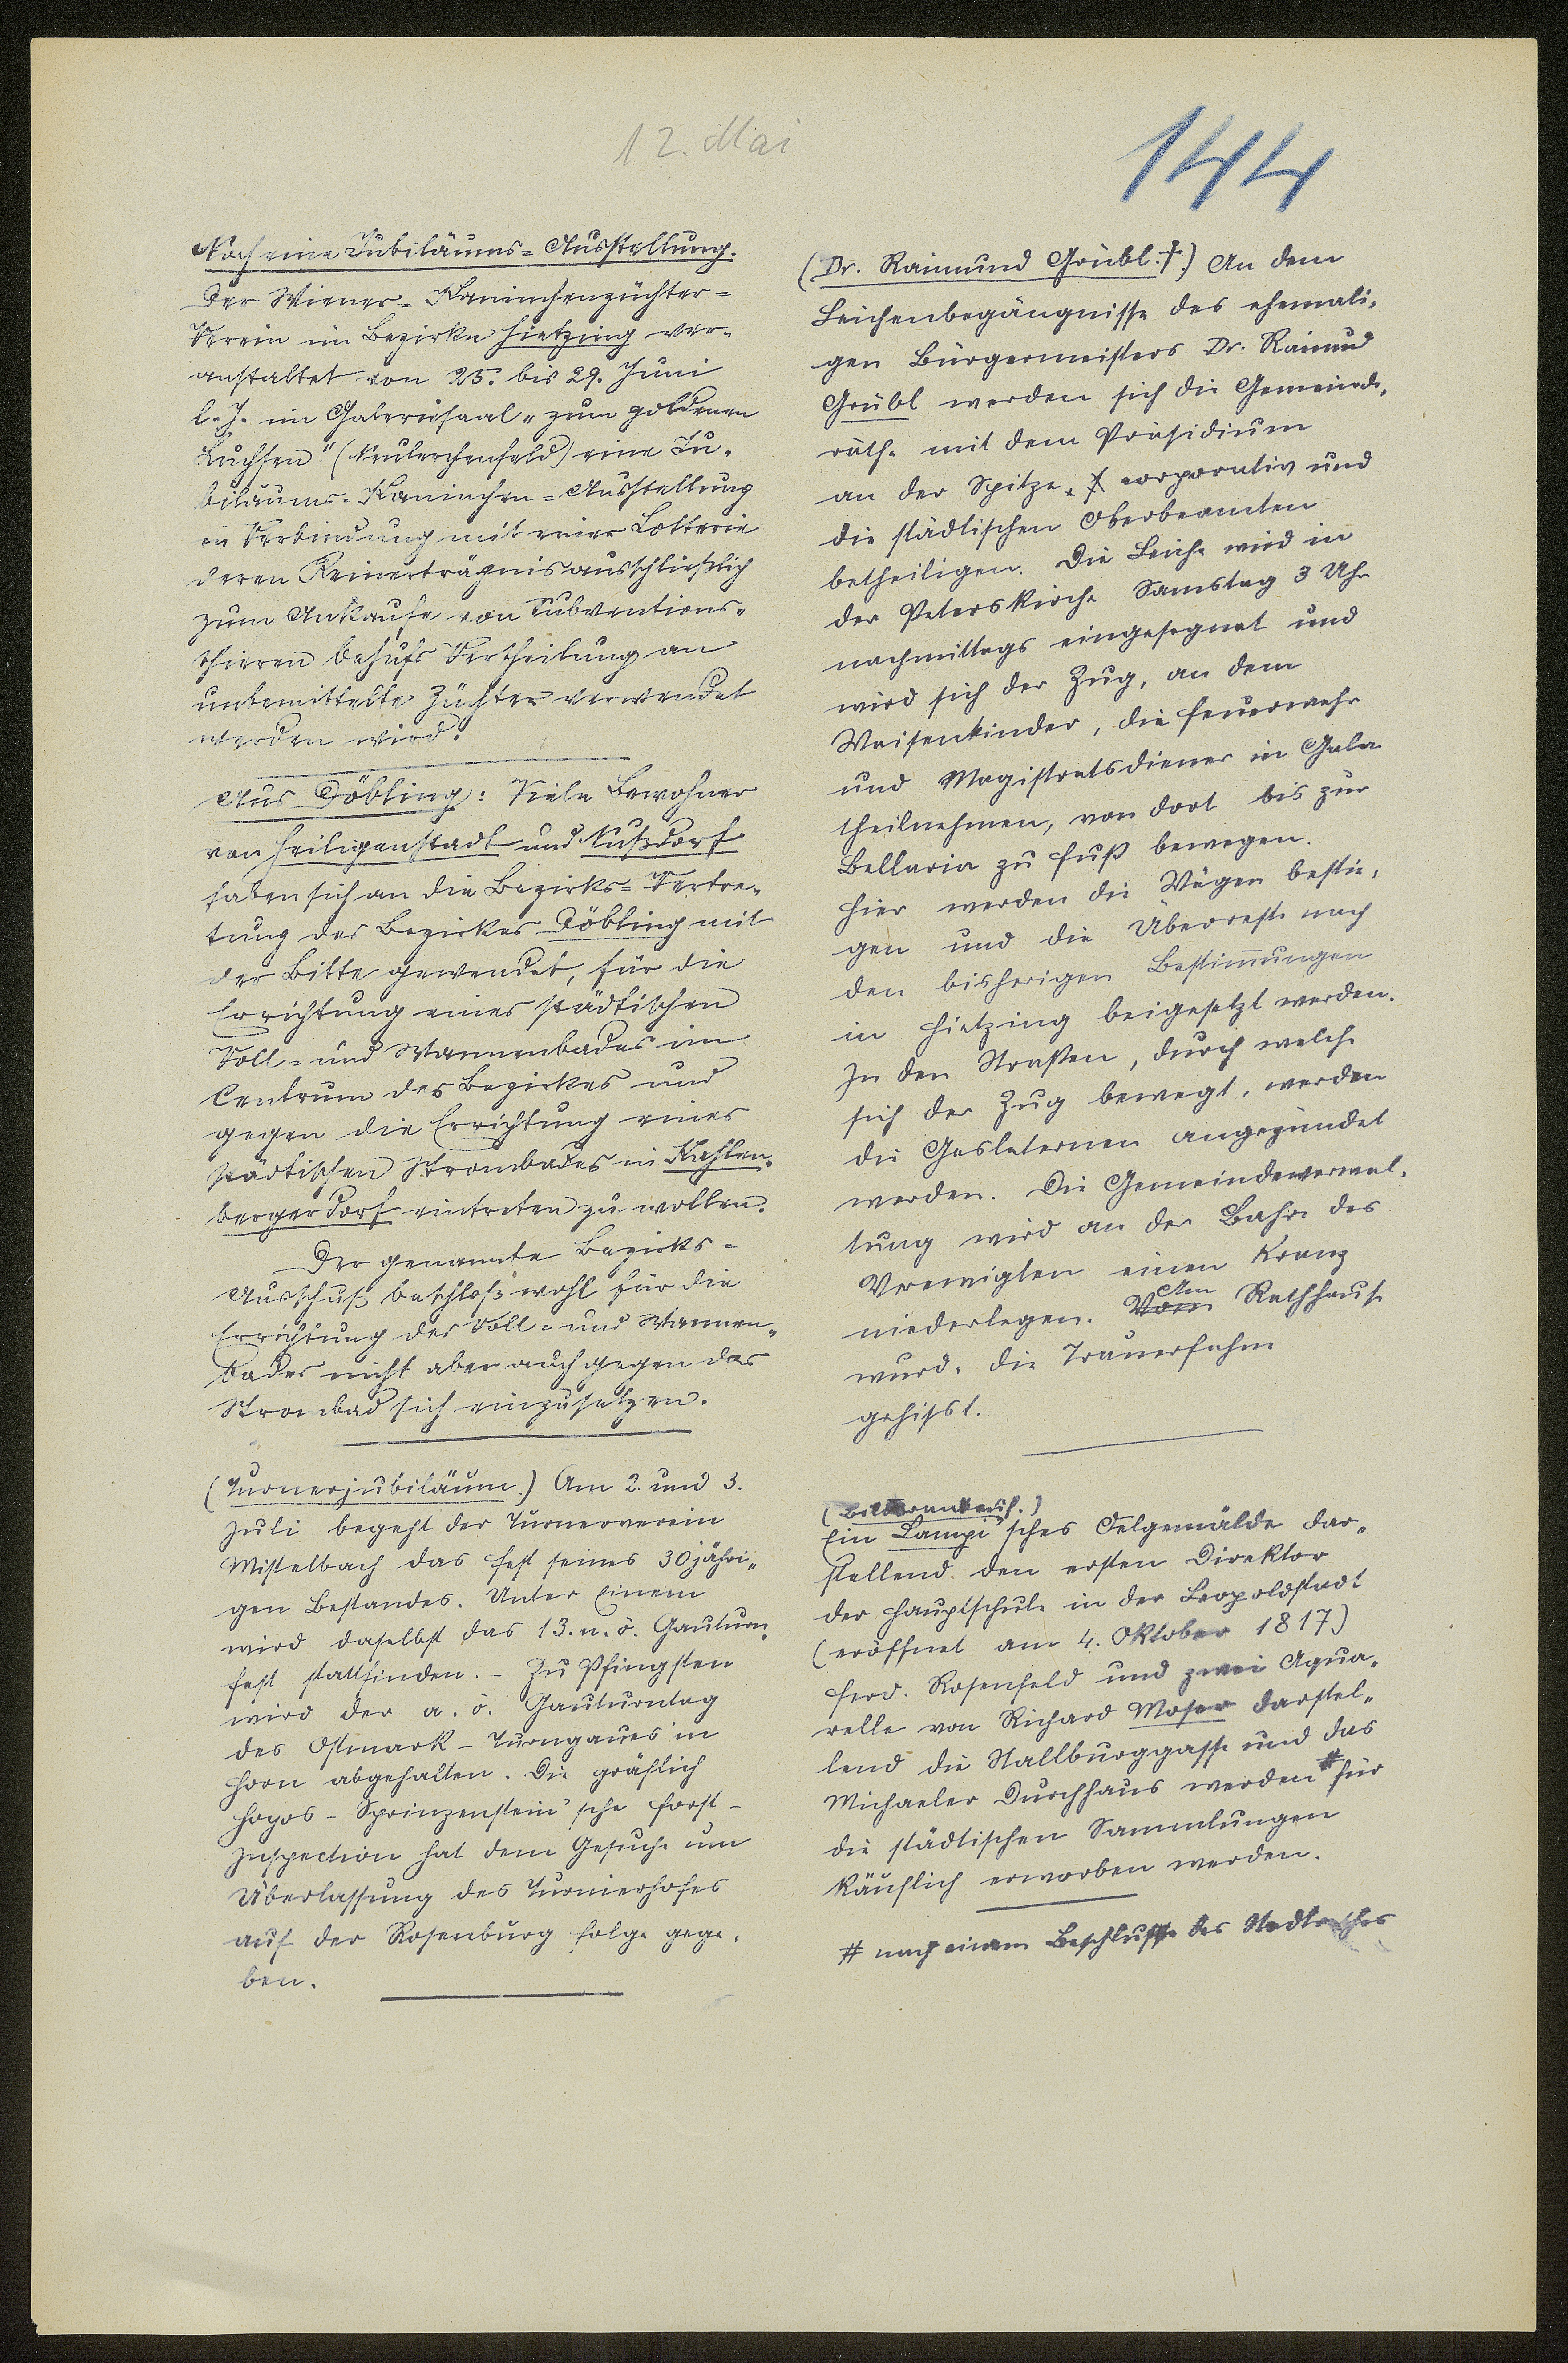 12. Mai
144
Noch eine Jubiläums-Ausstellung.
Der Wiener-Kaninchenzüchter-
Verein im Bezirke Hietzing ver-
anstaltet von 25. bis 29. Juni
l. J. im Galeriesaal "zum goldenen
Luchsen" (Neulerchenfeld) eine Ju-
biläums-Kaninchen-Ausstellung
in Verbindung mit einer Lotterie
deren Reinerträgnis ausschließlich
zum Ankaufe von Subventions-
thieren behufs Vertheilung an
unbemittelte Züchter verwendet
werden wird.
Aus Döbling: Viele Bewohner
von Heiligenstadt und Nußdorf
haben sich an die Bezirks-Vertre-
tung des Bezirkes Döbling mit
der Bitte gewendet, für die
Errichtung eines städtischen
Voll- und Wannenbades im
Centrum des Bezirkes und
gegen die Errichtung eines
städtischen Strombades in Kahlen-
bergerdorf eintreten zu wollen.
Der genannte Bezirks-
Ausschuß beschloß wohl für die
Errichtung des Voll- und Wannen-
bades nicht aber auch gegen das
Strombad sich einzusetzen.
(Turnerjubiläum.) Am 2. und 3.
Juli begeht der Turnerverein
Mistelbach das Fest seines 30jähri-
gen Bestandes. Unter Einem
wird daselbst das 13. n. ö. Gauturn-
fest stattfinden. - Zu Pfingsten
wird der a. ö. Gauturntag
des Ostmark-Turngaues in
Horn abgehalten. Die gräflich
Hoyos-Sprinzenstein'sche Forst-
Inspection hat dem Gesuche um
Überlassung des Turnierhofes
auf der Rosenburg Folge gege-
ben.
(Dr. Raimund Grübl †.) An dem
Leichenbegängnisse des ehemali-
gen Bürgermeisters Dr. Raimund
Grübl werden sich die Gemeinde-
räthe mit dem Präsidium
an der Spitze corporativ und
die städtischen Oberbeamten
betheiligen. Die Leiche wird in
der Peterskirche Samstag 3 Uhr
nachmittags eingesegnet und
wird sich der Zug, an dem
Waisenkinder, die Feuerwehr
und Magistratsdiener in Gala
theilnehmen, von dort bis zur
Bellaria zu Fuß bewegen.
Hier werden die Wägen bestie-
gen und die Überreste nach
den bisherigen Bestimmungen
in Hietzing beigesetzt werden.
In den Straßen, durch welche
sich der Zug bewegt, werden
die Gaslaternen angezündet
werden. Die Gemeindeverwal-
tung wird an der Bahre des
Verewigten einen Kranz
niederlegen. Vom Am Rathhause
wurde die Trauerfahne
gehisst.
(Bilderankauf.)
Ein Lampi'sches Oelgemälde dar-
stellend den ersten Direktor
der Hauptschule in der Leopoldstadt
(eröffnet am 4. Oktober 1817)
Ferd. Rosenfeld und zwei Aqua-
relle von Richard Moser darstel-
lend die Stallburggasse und das
Michaeler Durchhaus werden # für
die städtischen Sammlungen
käuflich erworben werden.
# nach einem Beschlusse des Stadtrathes